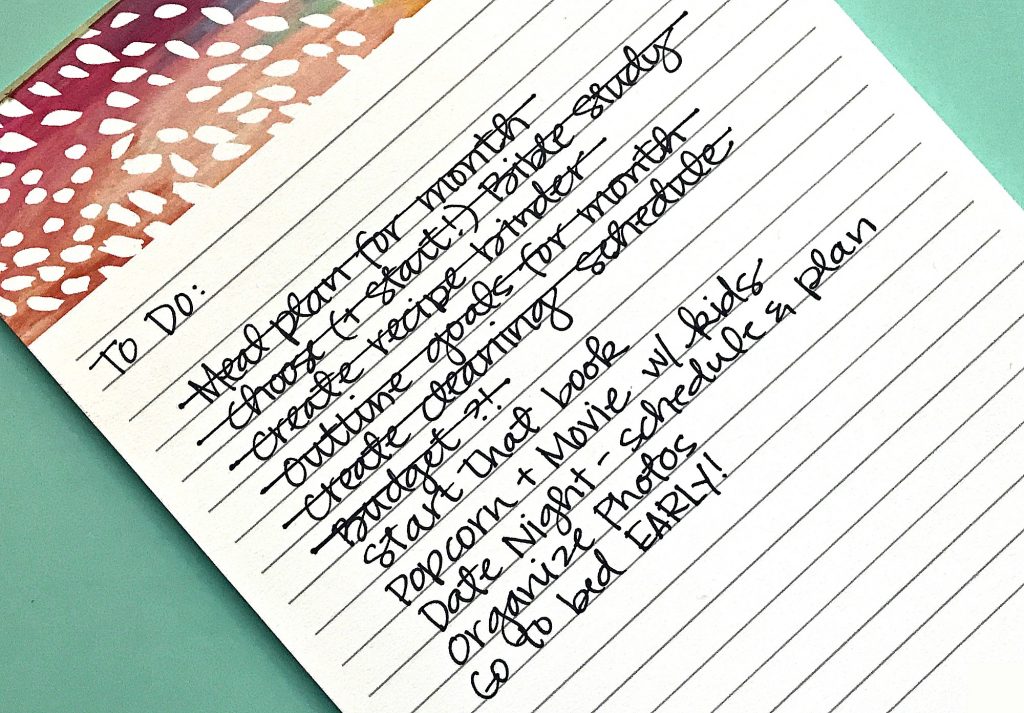 To Do:
Meal plan for month
choose (+ start!) Bible study
create recipe binder
outline goals for month
create cleaning schedule
Budget ?!
start that book
Popcorn + Movie w/ kids
Date Night - schedule & plan
organize Photos
Go to bed EARLY!